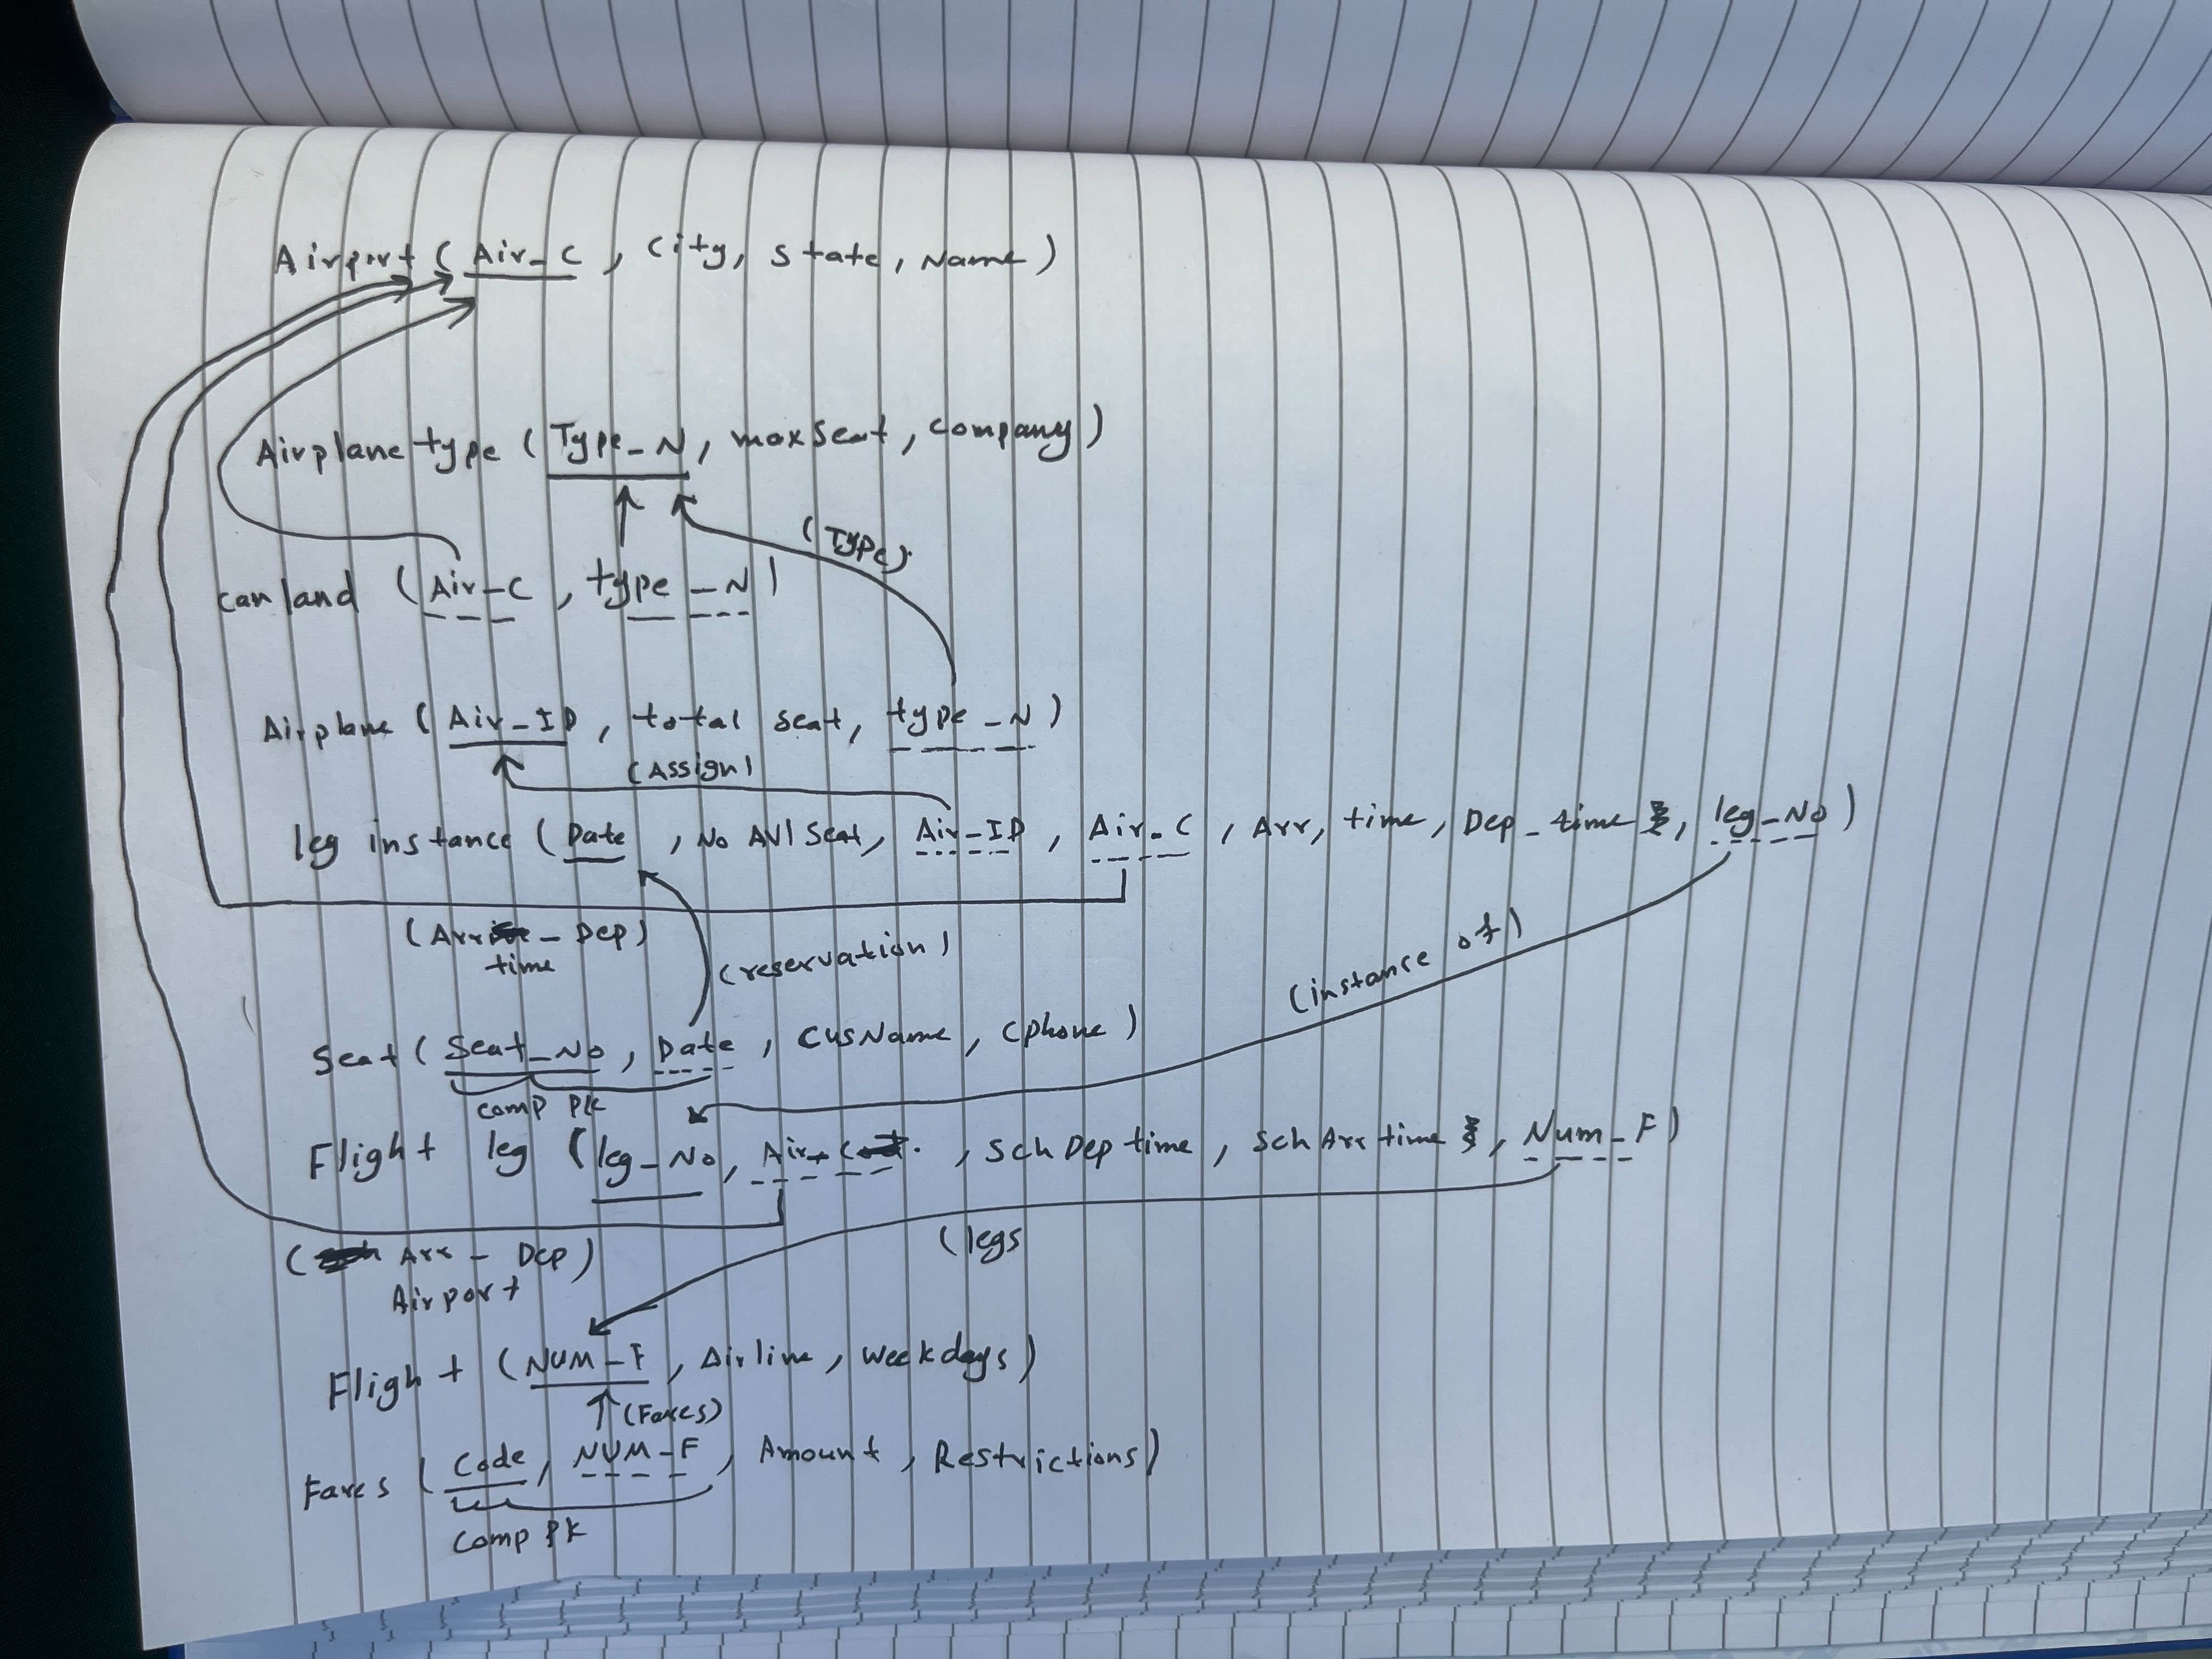 Airport ( Air_C , City, state, Name )
Airplane type ( Type_N, maxSeat, company )
(Type)
can land ( Air_C , type_N )
Airplane ( Air_ID , total seat, type_N )
(Assign)
leg instance ( Date , No AVl Seat, Air_ID , Air_C , Arr, time, Dep_time , leg_No )
(Arr - Dep)
time
(reservation)
(instance of)
Seat ( Seat_No , Date , CusName, Cphone )
comp PK
Flight leg ( leg_No, Air_C , Sch Dep time , Sch Arr time , Num_F )
(legs
( Arr - Dep )
Airport
Flight ( NUM_F , Airline, weekdays )
(Fares)
Fares ( Code, NUM_F , Amount , Restrictions )
Comp PK